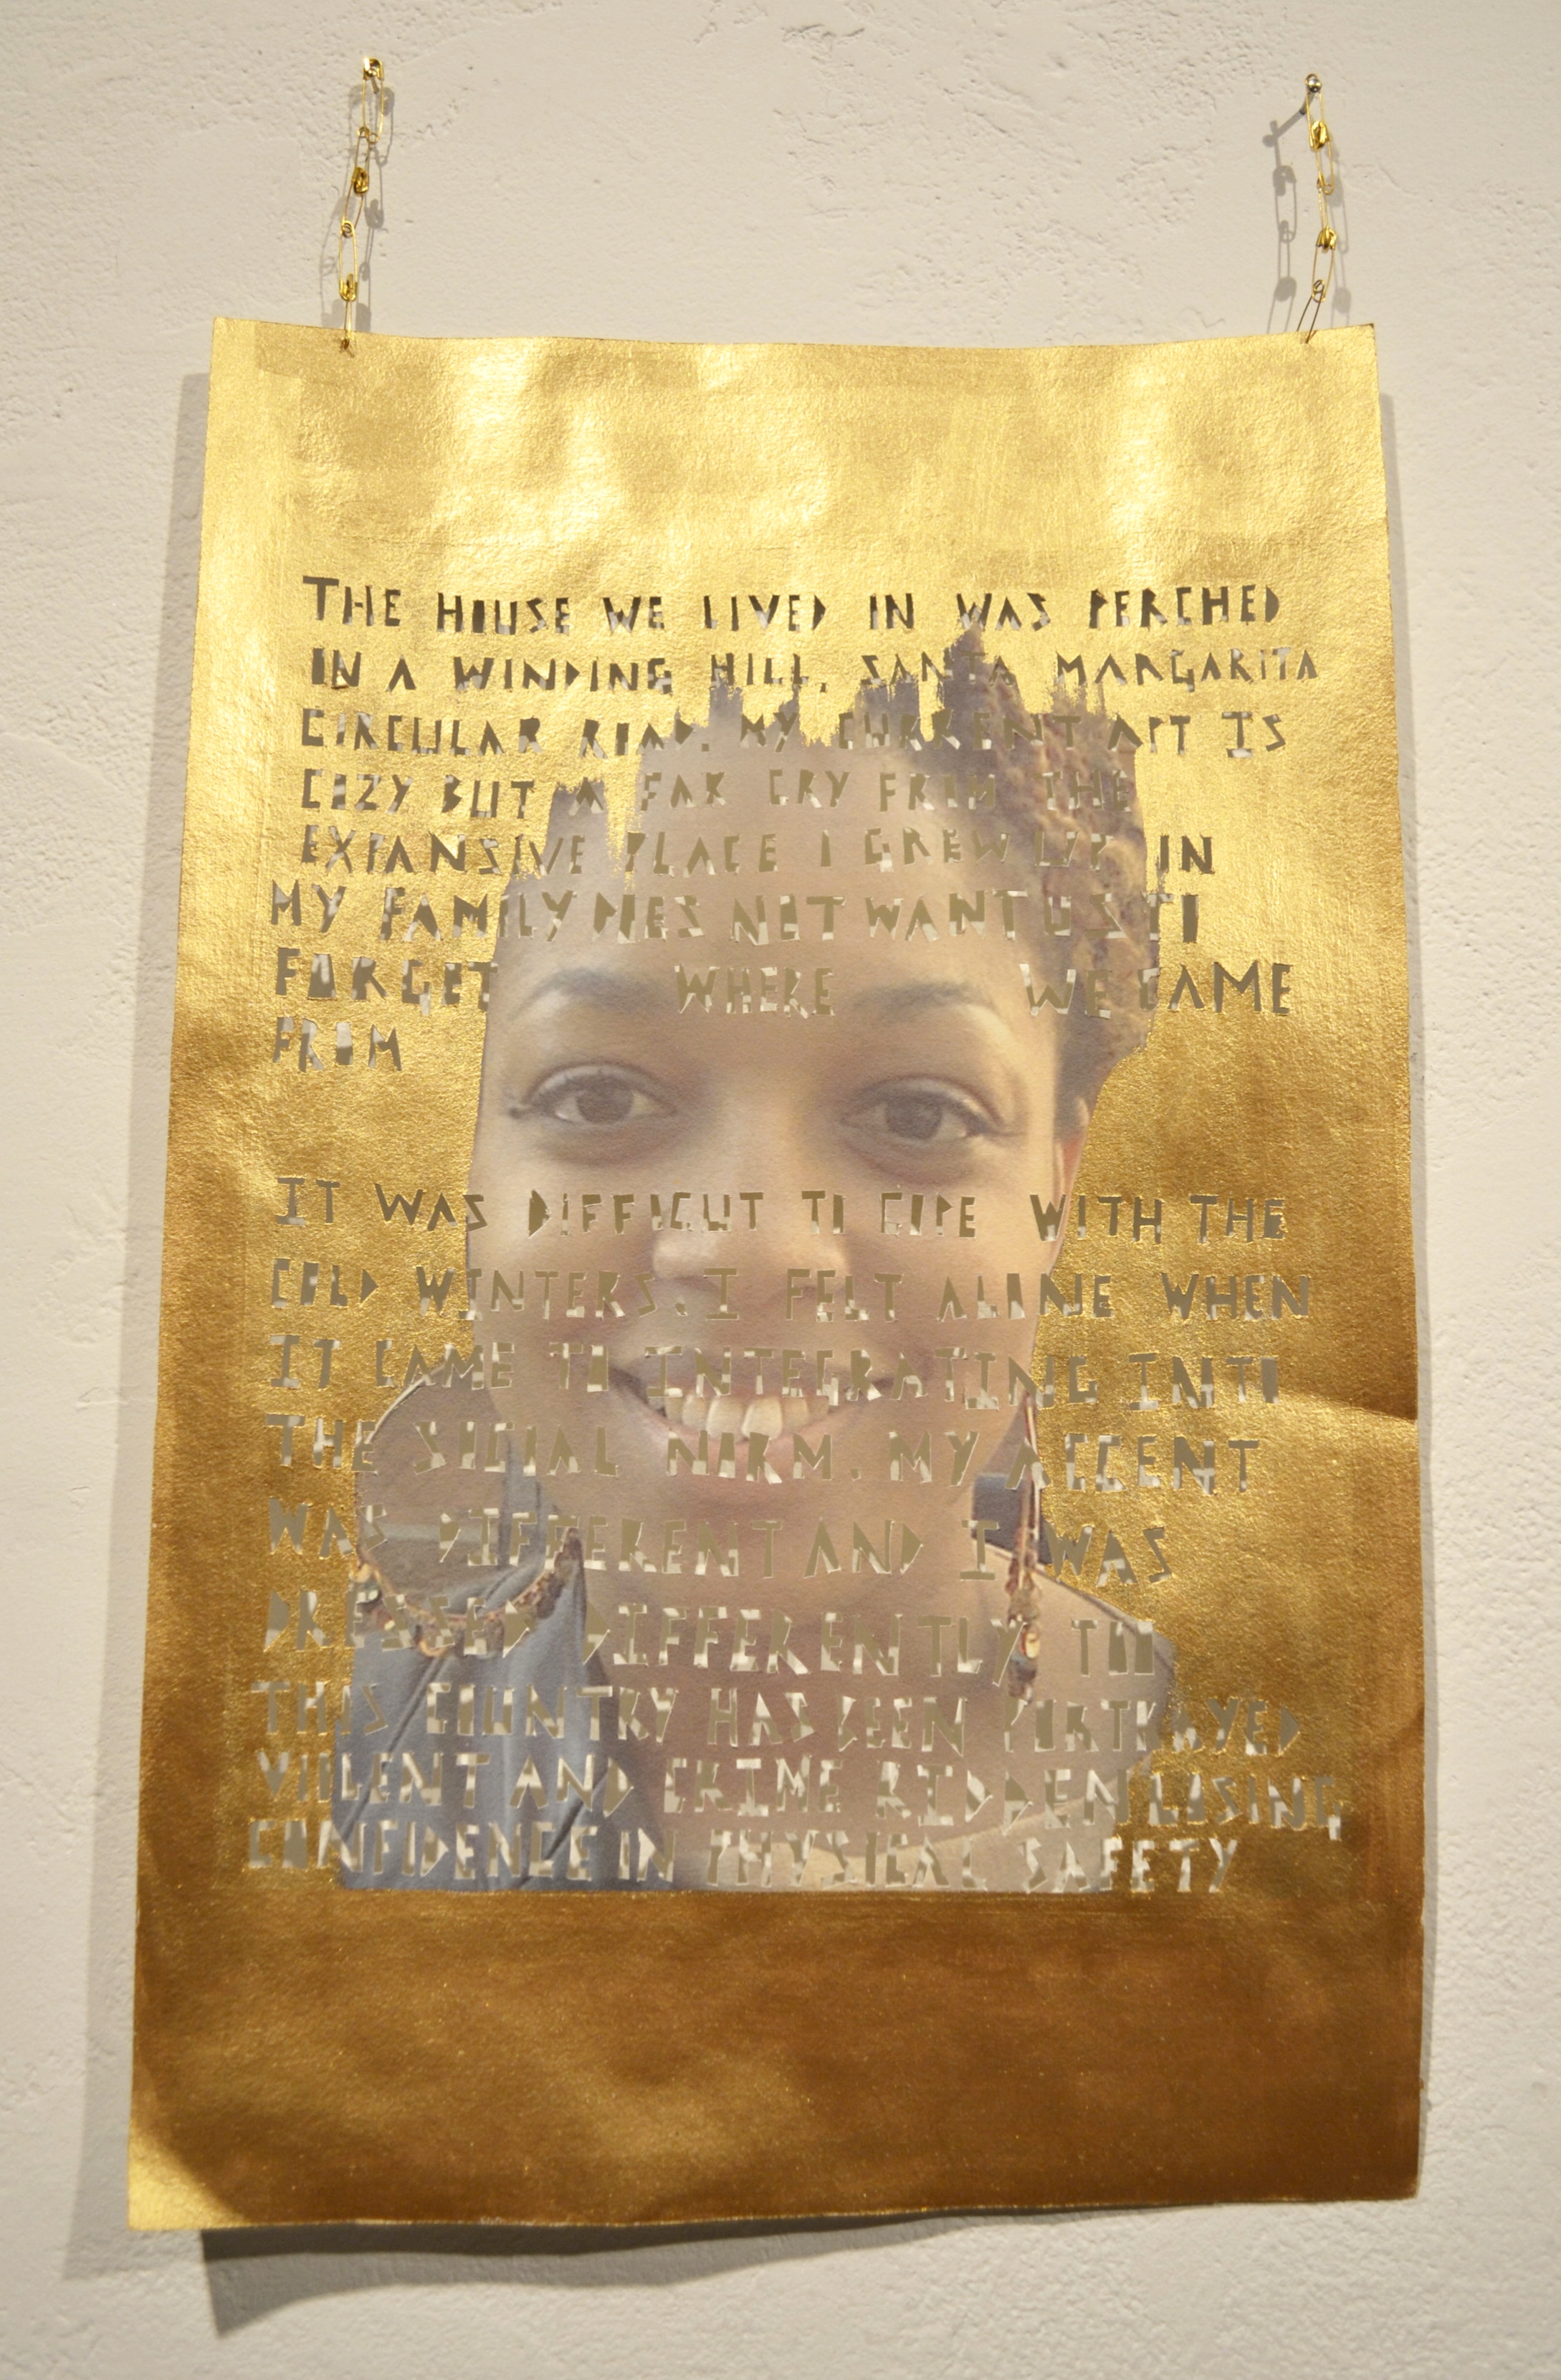 THE HOUSE WE LIVED IN WAS PERCHED
IN A WINDING HILL, SANTA MARGARITA
CIRCULAR ROAD. MY CURRENT APT IS
COZY BUT A FAR CRY FROM THE
EXPANSIVE PLACE I GREW UP IN
MY FAMILY DOES NOT WANT US TO
FORGET WHERE WE CAME
FROM
IT WAS DIFFICUT TO COPE WITH THE
COLD WINTERS. I FELT ALONE WHEN
IT CAME TO INTEGRATING INTO
THE SOCIAL NORM. MY ACCENT
WAS DIFFERENT AND I WAS
DRESSED DIFFERENTLY TOO
THIS COUNTRY HAS BEEN PORTRAYED
VIOLENT AND CRIME RIDDEN LOSING
CONFIDENCE IN PHYSICAL SAFETY